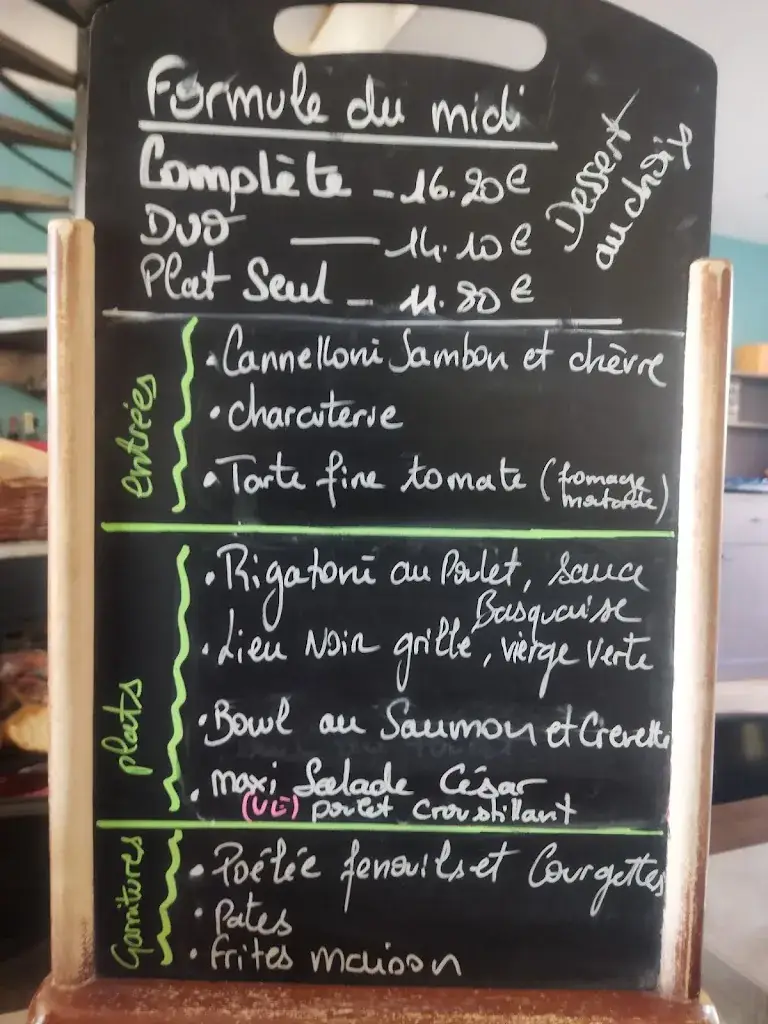 Formule du midi
Complète - 16.20€
Duo — 14.10€
Plat Seul - 11.80€
Dessert
au choix
entrées
• Cannelloni Jambon et chèvre
• charcuterie
• Tarte fine tomate (fromage
moutarde)
plats
• Rigatoni au Poulet, sauce
Basquaise
• Lieu Noir grillé, vierge verte
• Bowl au Saumon et Crevette
• maxi Salade César
(UE) poulet croustillant
Garnitures
• Poélée fenouils et Courgettes
• Pates
• frites maison